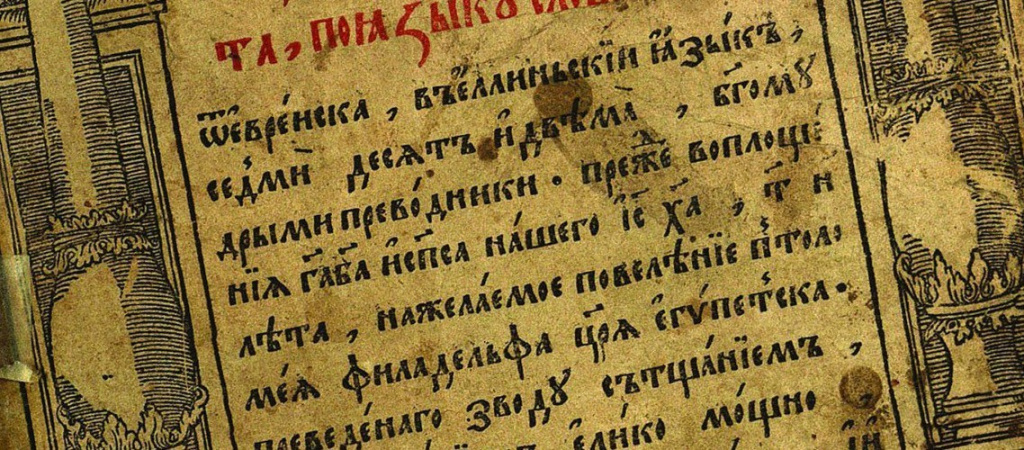 та, поꙗзыкꙋ
ѿевре́йска, въе́ллиньскїй ꙗ҆зы́къ,
се́дмй десѧтъ и҆двѣма̀, бг҃ому
дрыми прево́дники. пре́же воплоще́
нїѧ га҃ба и҆сп҃са на́шего і҆с҃ хр҃а, т҃ и҆
лѣта, нажела́емое повелѣнїе пто́ло
ме́ѧ филадельфа цр҃ѧ є҆гѵ́петска.
преведе́наго зводу сътща́нїемъ,
е҆лико мо́щно,